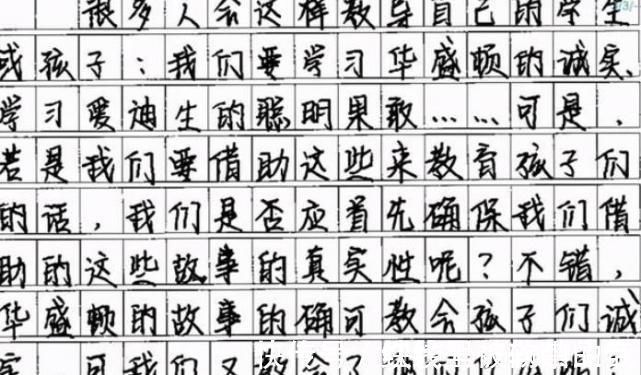 很多人会这样教导自己的学生
或孩子：我们要学习华盛顿的诚实、
学习爱迪生的聪明果敢……可是，
若是我们要借助这些来教育孩子们
的话，我们是否应首先确保我们借
助的这些故事的真实性呢？不错，
华盛顿的故事的确可教会孩子们诚
实，可我们又教会了他们